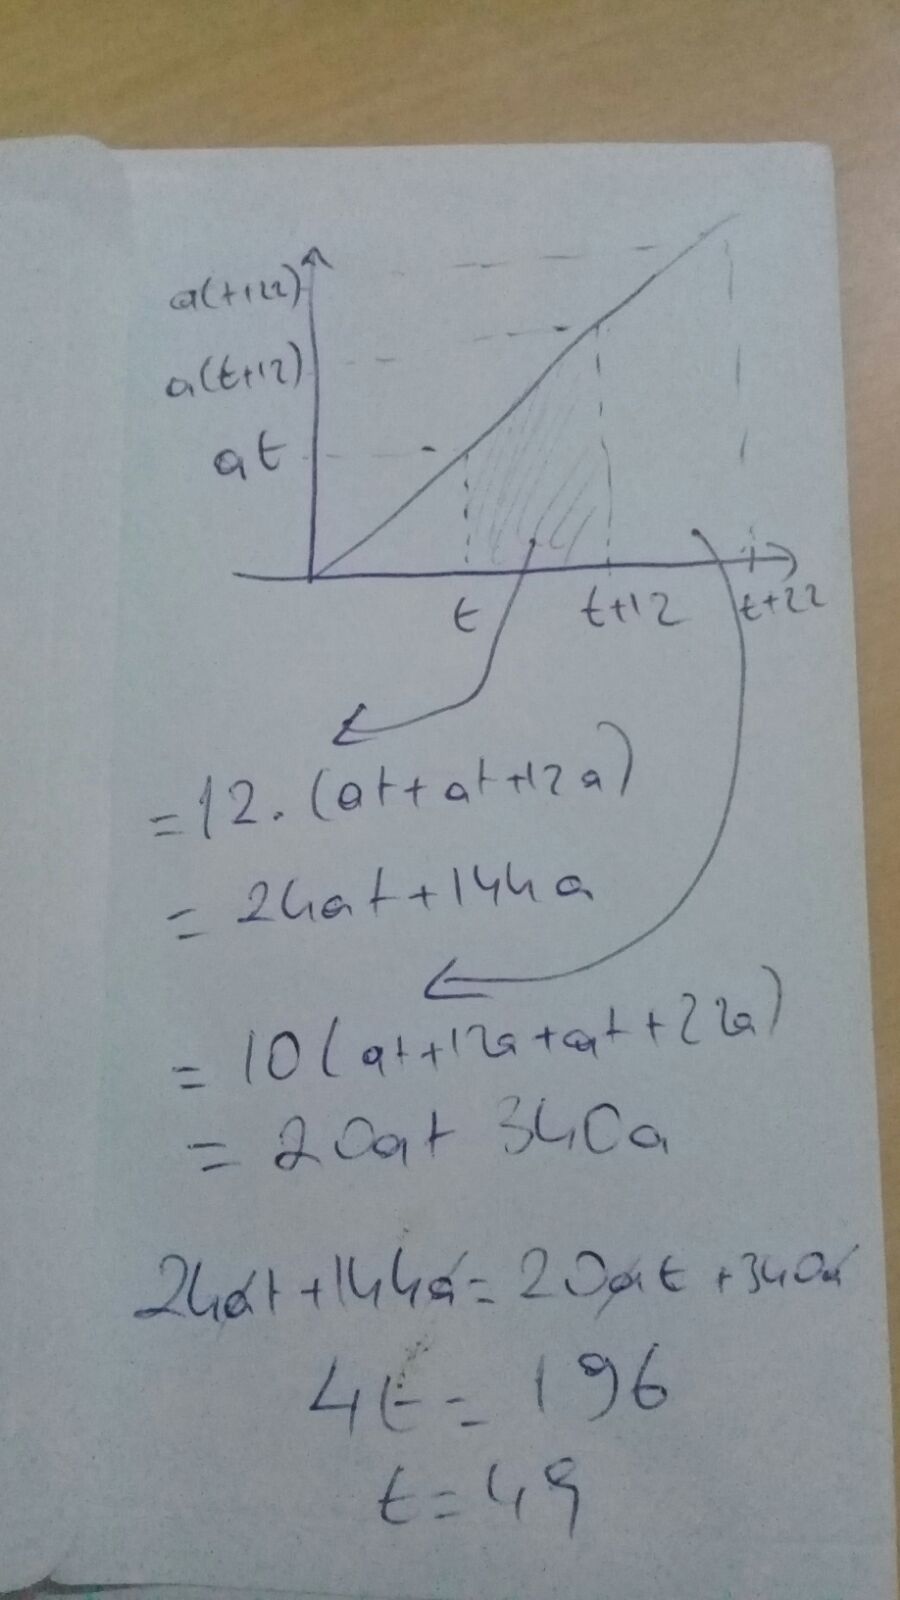 a(t+22)
a(t+12)
at
t t+12 t+22
=12.(at+at+12a)
= 24at+144a
= 10(at+12a+at+22a)
= 20at+340a
24at+144a=20at+340a
4t=196
t=49